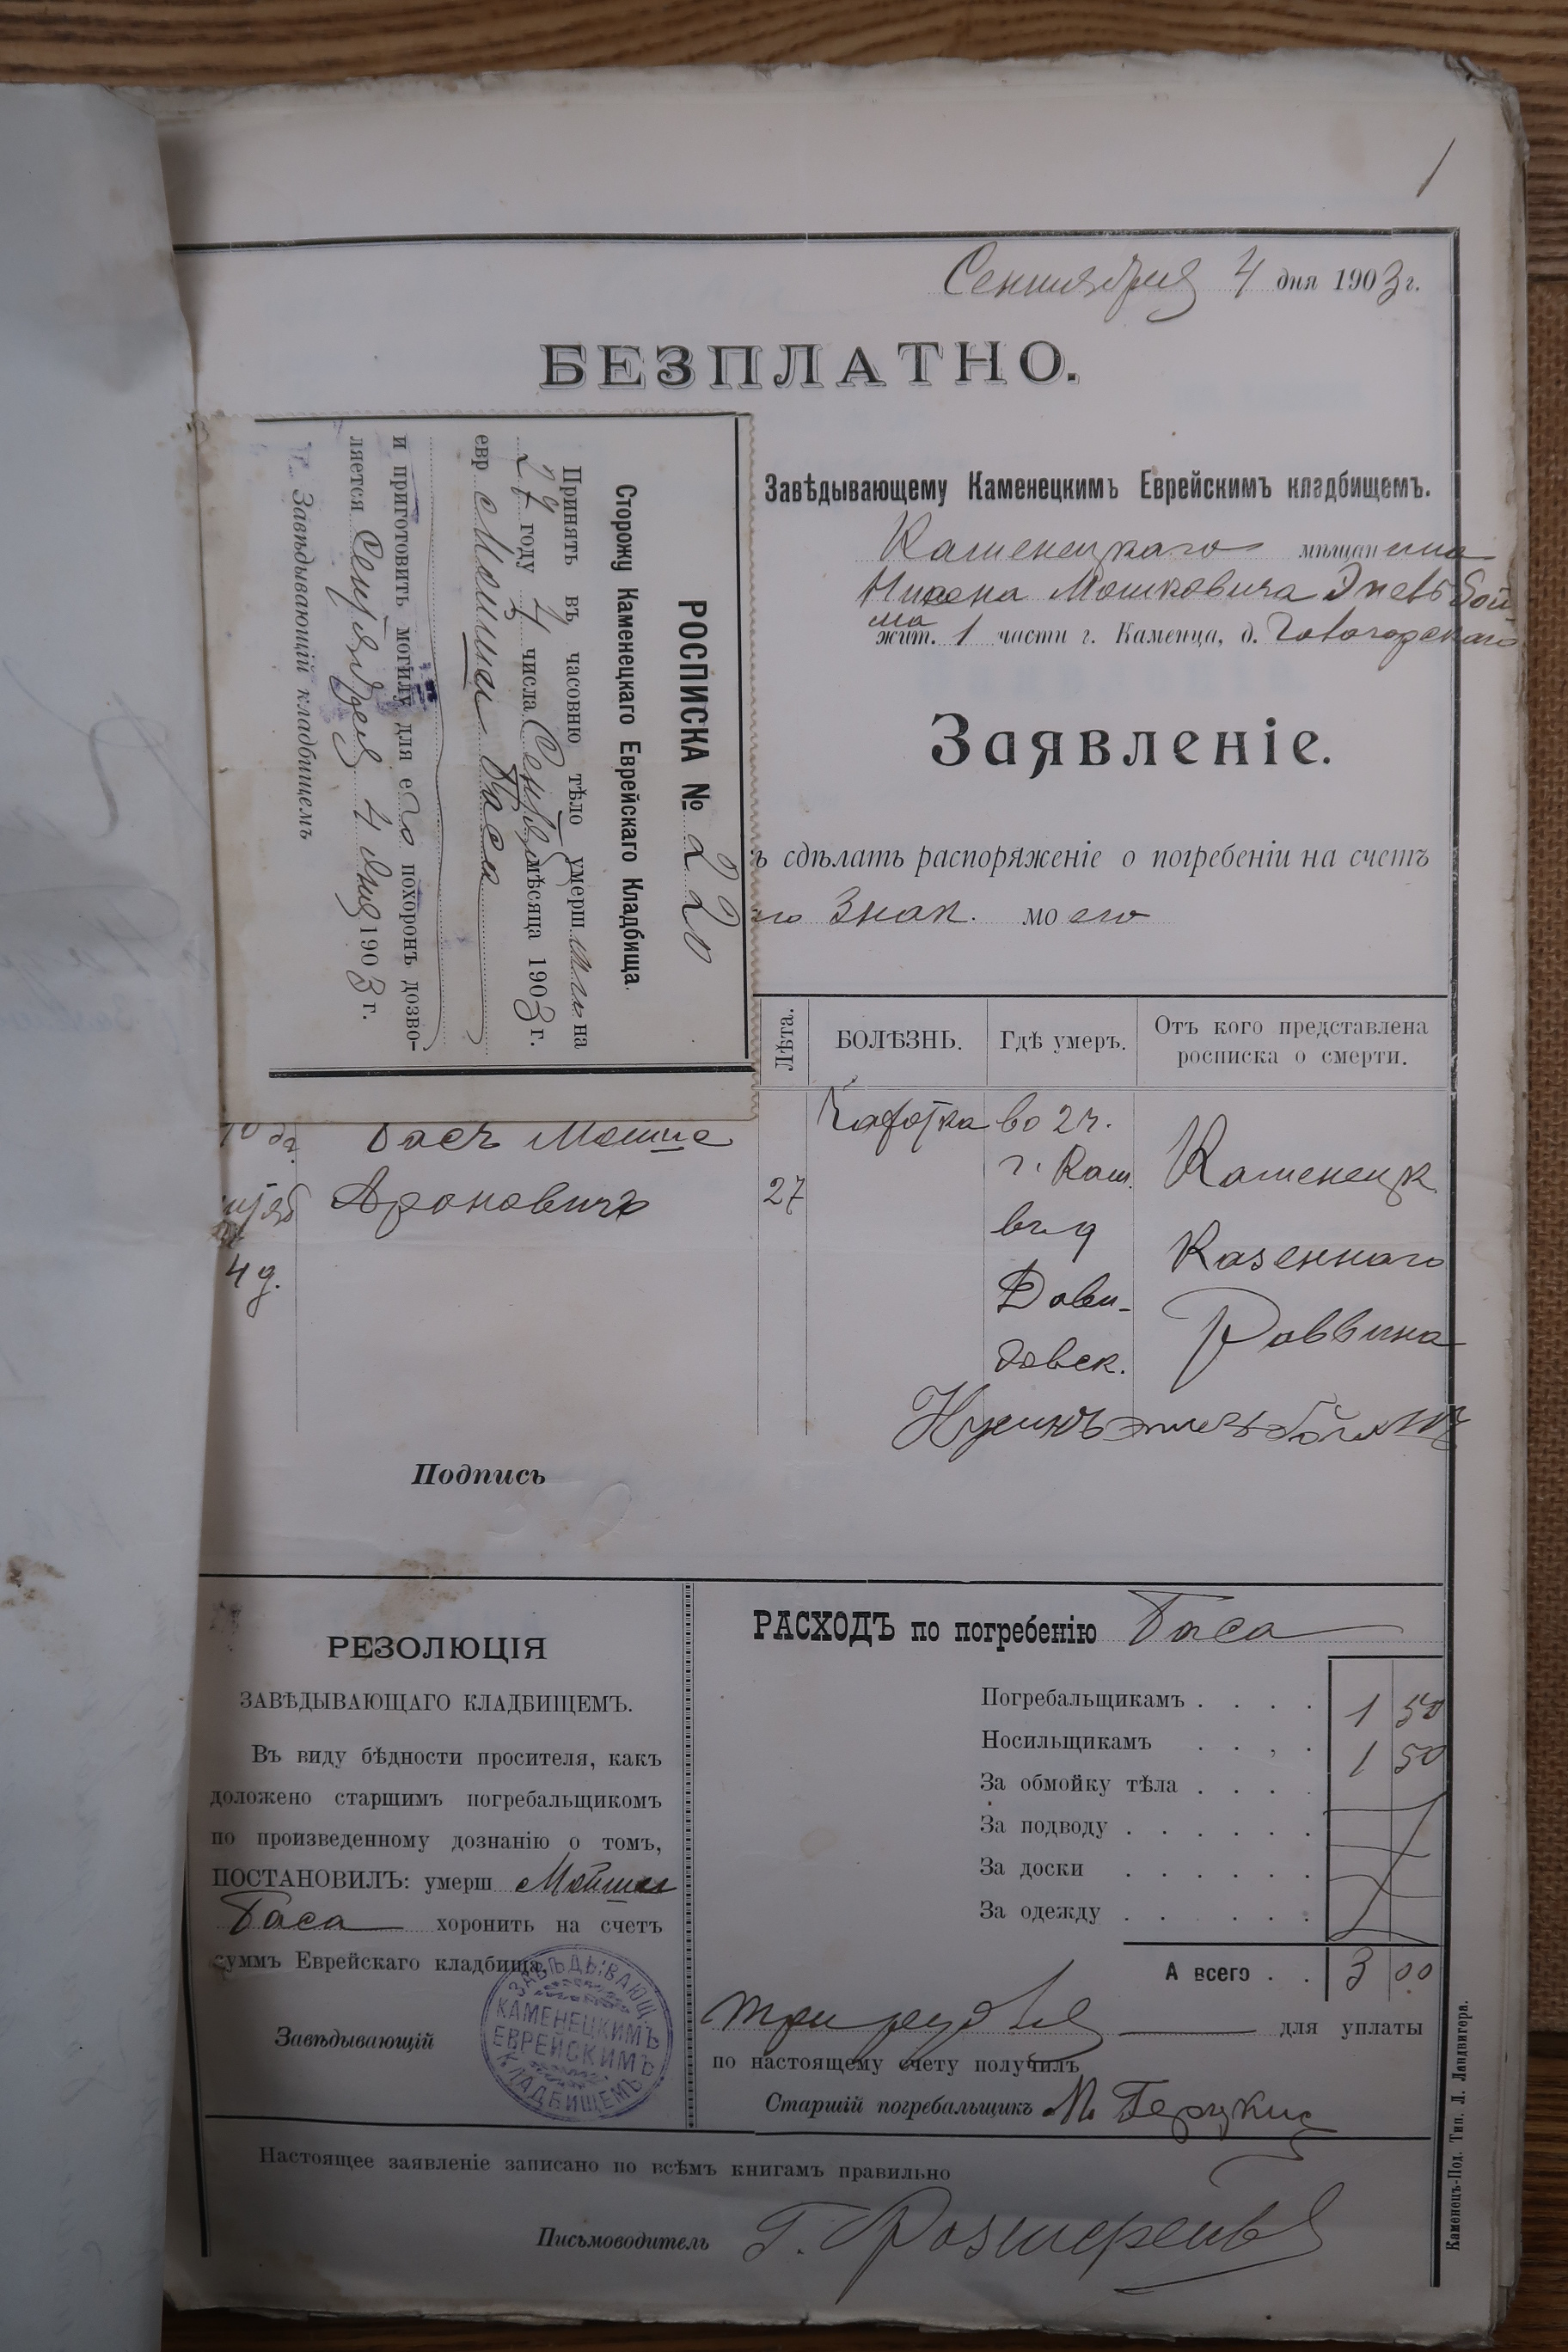 1
Сентября 4 дня 1903 г.
БЕЗПЛАТНО.
Завѣдывающему Каменецкимъ Еврейскимъ кладбищемъ.
Каменецкаго мѣщанина
Мошковича
жит. 1 части г. Каменца, д.
Заявленіе.
ъ сдѣлать распоряженіе о погребеніи на счетъ
го Знак. моего
РОСПИСКА № 220
Сторожу Каменецкаго Еврейскаго Кладбища.
Принять въ часовню тѣло умерш на
27 году 4 числа Сентя мѣсяца 1903 г.
евр Мошки Баса
и приготовить могилу для его похоронъ дозво-
ляется Сентября 4 дня 1903 г.
Завѣдывающій кладбищемъ
Лѣта.
БОЛѢЗНЬ.
Гдѣ умеръ.
Отъ кого представлена
росписка о смерти.
Басъ Мошко
Ароновичъ
4 д.
27
Чахотка
во 2 ч.
г. Кам.
Дави-
довск.
Каменецк
Казеннаго
Раввина
Подпись
РЕЗОЛЮЦІЯ
ЗАВѢДЫВАЮЩАГО КЛАДБИЩЕМЪ.
Въ виду бѣдности просителя, какъ
доложено старшимъ погребальщикомъ
по произведенному дознанію о томъ,
ПОСТАНОВИЛЪ: умерш
Баса хоронить на счетъ
суммъ Еврейскаго кладбища
Завѣдывающій
ЗАВѢДЫВАЮЩ.
КАМЕНЕЦКИМЪ
ЕВРЕЙСКИМЪ
КЛАДБИЩЕМЪ
РАСХОДЪ по погребенію Баса
Погребальщикамъ . . . . 1 50
Носильщикамъ . . , . 1 50
За обмойку тѣла . . . .
За подводу . . . . . .
За доски . . . . . .
За одежду . . . . . .
А всего . . 3 00
три рубля для уплаты
по настоящему счету получилъ
Старшій погребальщикъ М.
Настоящее заявленіе записано по всѣмъ книгамъ правильно
Письмоводитель Г.
Каменецъ-Под. Тип. Л. Ландвигера.